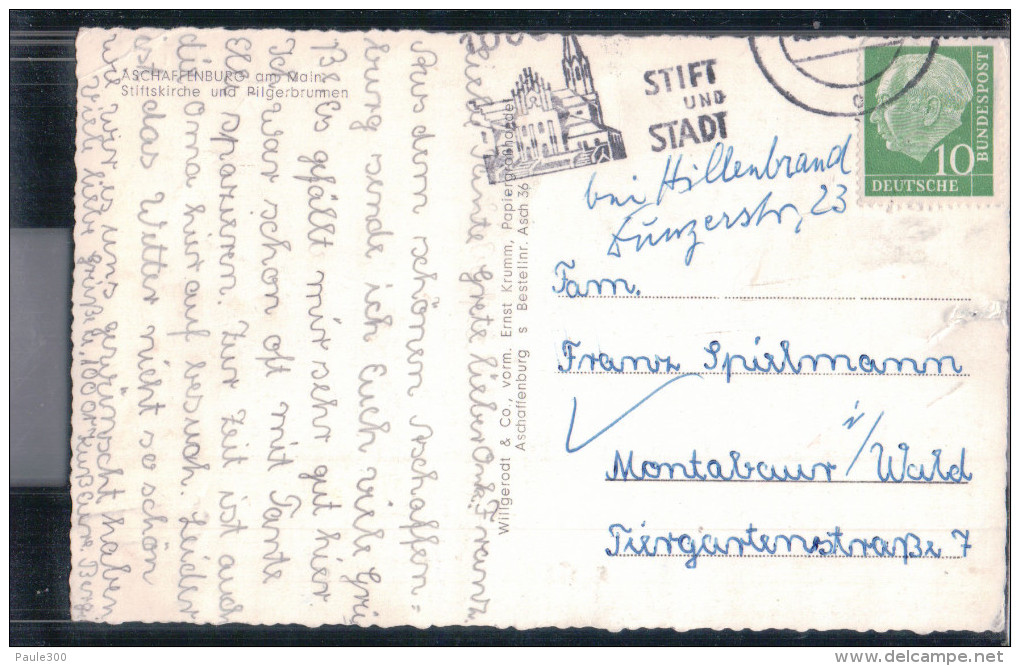 ASCHAFFENBURG am Main
Stiftskirche und Pilgerbrunnen
Liebe Tante Grete lieber Onk. Franz.
Aus dem schönen Aschaffen=
burg sende ich Euch viele Grü
ße. Es gefällt mir sehr gut hier
Ich war schon oft mit Tante
Elis spazieren. Zur Zeit ist auch
die Oma hier auf besuch. Leider
ist das Wetter nicht so schön
wie wir es uns gewünscht haben
Viele liebe Grüße u. 100 Br Kuß Eure
Willgerodt & Co., vorm. Ernst Krumm, Papiergroßhandel
Aschaffenburg s Bestellnr. Asch 36
STIFT
UND
STADT
10
DEUTSCHE
BUNDESPOST
bei Hillenbrand
23
Fam.
Franz Spielmann
Montabaur i/Wald
Tiergartenstraße 7
Paule300